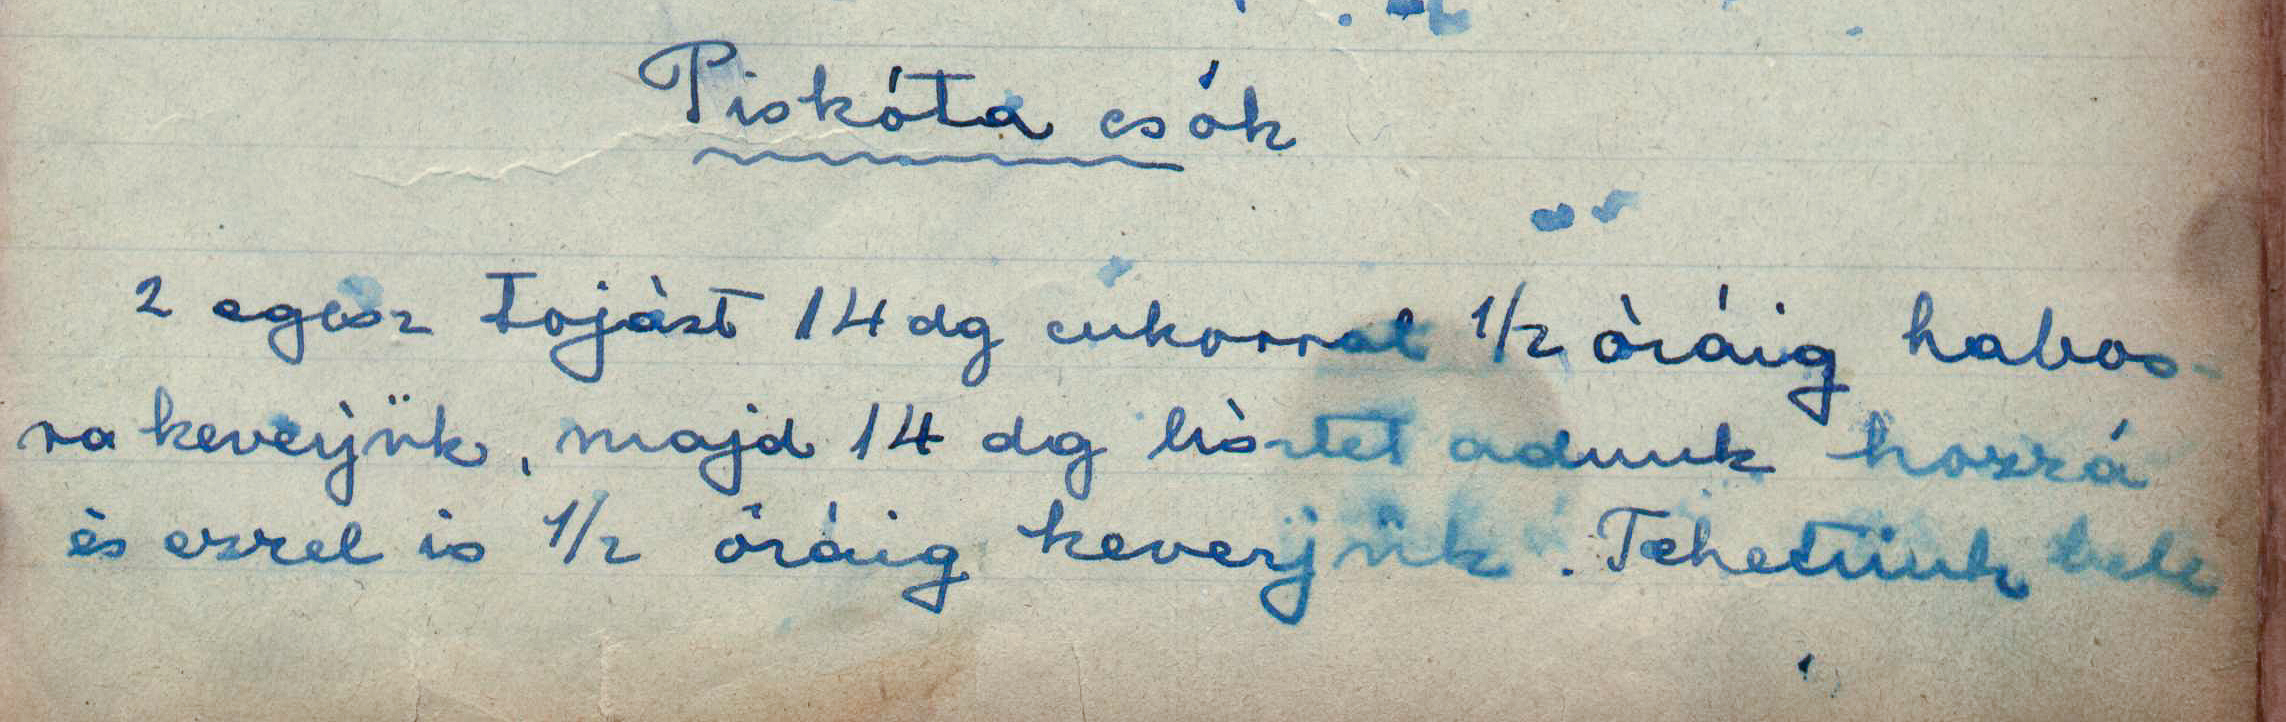 Piskóta csók
2 egész tojást 14 dg cukorral 1/2 óráig habos-
ra keverjük, majd 14 dg lisztet adunk hozzá
és ezzel is 1/2 óráig keverjük. Tehetünk bele